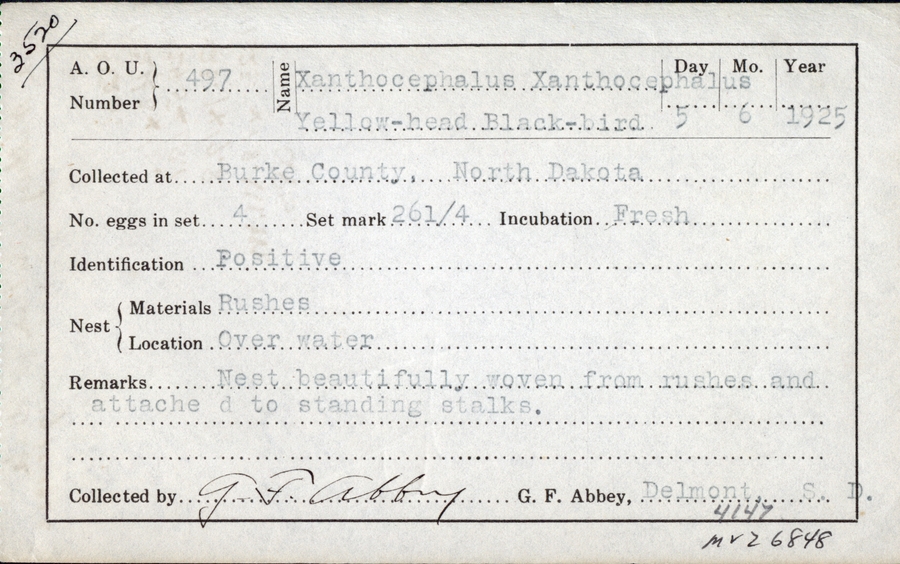 3520
A. O. U. Number 497 Name Xanthocephalus Xanthocephalus Day Mo. Year
Yellow-head Black-bird 5 6 1925
Collected at Burke County, North Dakota
No. eggs in set 4 Set mark 261/4 Incubation Fresh
Identification Positive
Nest Materials Rushes
Location Over water
Remarks Nest beautifully woven from rushes and
attache d to standing stalks.
Collected by G. F. Abbey G. F. Abbey, Delmont, S. D.
4147
MVZ 6848